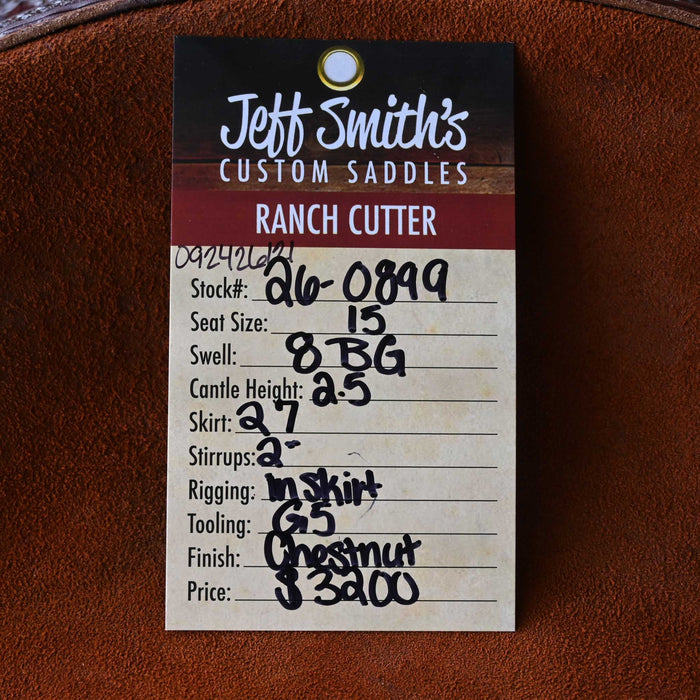 Jeff Smith's
CUSTOM SADDLES
RANCH CUTTER
Stock#: 26-0899
Seat Size: 15
Swell: 8 BG
Cantle Height: 2.5
Skirt: 27
Stirrups: 2"
Rigging: In Skirt
Tooling: G5
Finish: Chestnut
Price: $3200